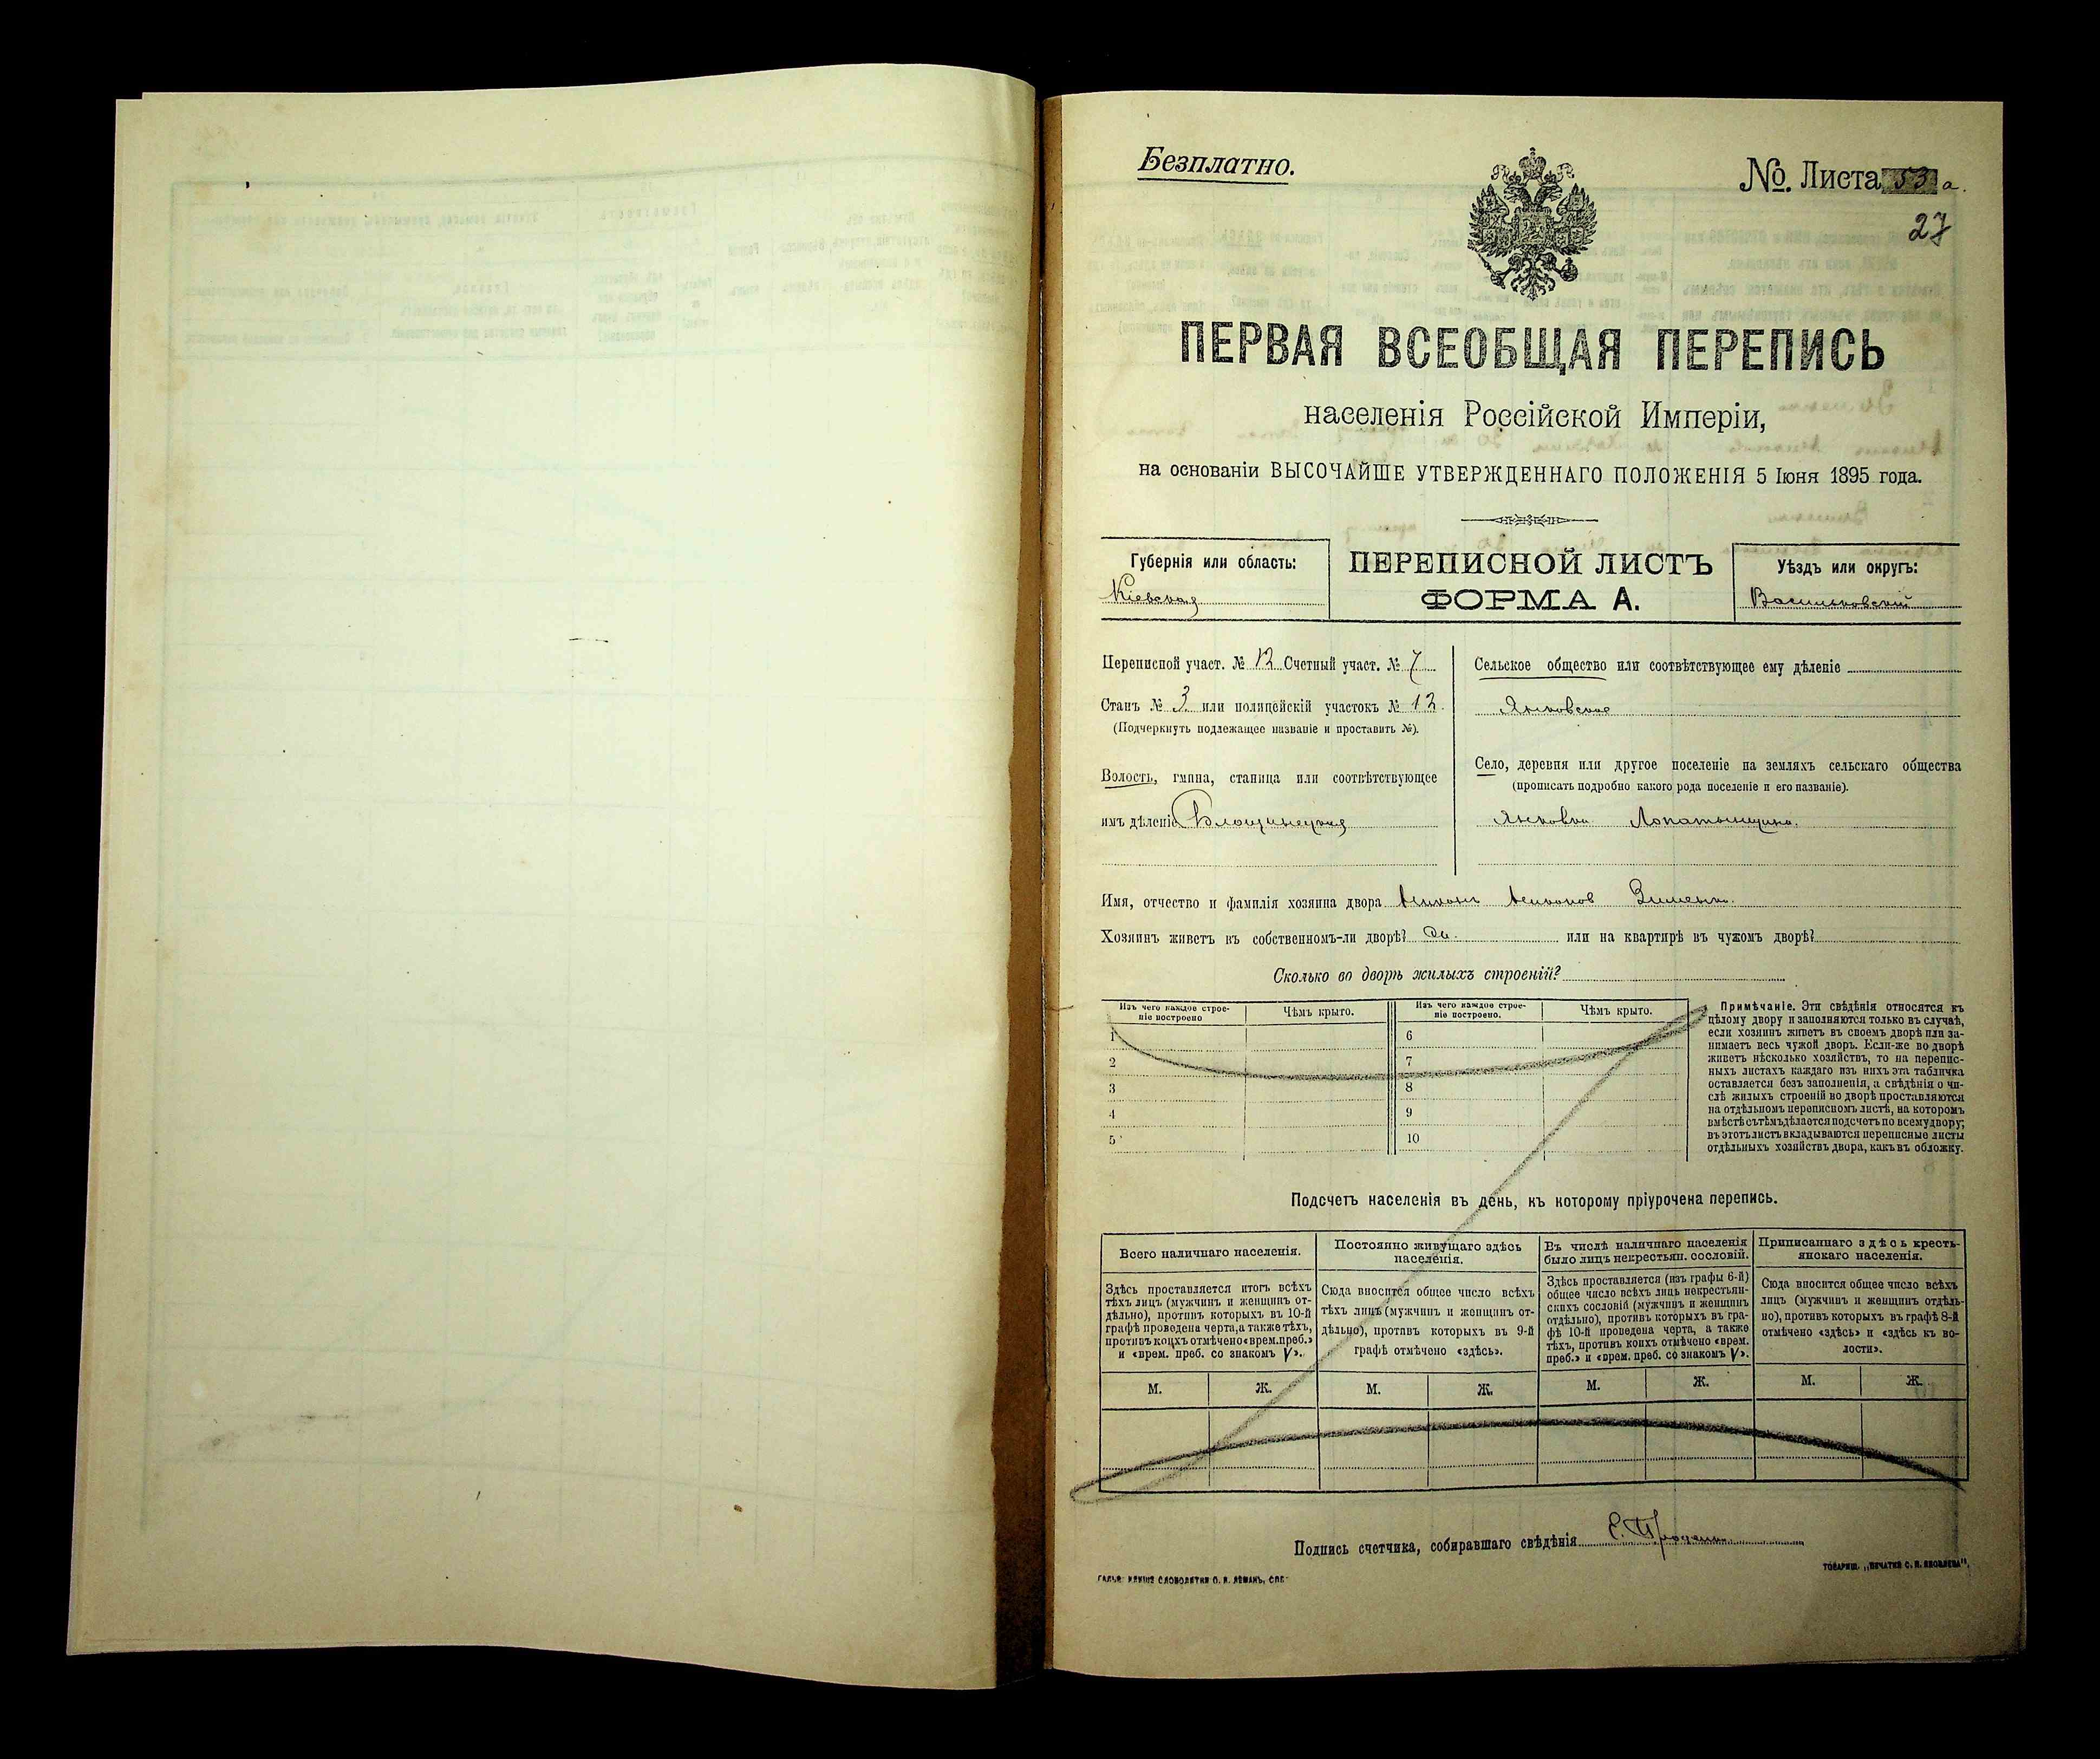 Безплатно.
№. Листа 53 а.
27
ПЕРВАЯ ВСЕОБЩАЯ ПЕРЕПИСЬ
населенія Россійской Имперіи,
на основаніи ВЫСОЧАЙШЕ УТВЕРЖДЕННАГО ПОЛОЖЕНІЯ 5 Іюня 1895 года.
Губернія или область:
Кіевская
ПЕРЕПИСНОЙ ЛИСТЪ
ФОРМА А.
Уѣздъ или округъ:
Васильковскій
Переписной участ. № 12 Счетный участ. № 7
Станъ № 3 или полицейскій участокъ № 12.
(Подчеркнуть подлежащее названіе и проставить №).
Волость, гмина, станица или соотвѣтствующее
имъ дѣленіе Блощинецкая
Сельское общество или соотвѣтствующее ему дѣленіе
Янковское
Село, деревня или другое поселеніе на земляхъ сельскаго общества
(прописать подробно какого рода поселеніе и его названіе).
Янковка Лопатынщина.
Имя, отчество и фамилія хозяина двора Зименко.
Хозяинъ живетъ въ собственномъ-ли дворѣ? да. или на квартирѣ въ чужомъ дворѣ?
Сколько во дворѣ жилыхъ строеній?
Изъ чего каждое строе-
ніе построено
Чѣмъ крыто.
Изъ чего каждое строе-
ніе построено.
Чѣмъ крыто.
1
2
3
4
5
6
7
8
9
10
Примѣчаніе. Эти свѣдѣнія относятся къ
цѣлому двору и заполняются только въ случаѣ,
если хозяинъ живетъ въ своемъ дворѣ или за-
нимаетъ весь чужой дворъ. Если-же во дворѣ
живетъ нѣсколько хозяйствъ, то на перепис-
ныхъ листахъ каждаго изъ нихъ эта табличка
оставляется безъ заполненія, а свѣдѣнія о чи-
слѣ жилыхъ строеній во дворѣ проставляются
на отдѣльномъ переписномъ листѣ, на которомъ
вмѣстѣ съ тѣмъ дѣлается подсчетъ по всему двору;
въ этотъ листъ вкладываются переписные листы
отдѣльныхъ хозяйствъ двора, какъ въ обложку.
Подсчетъ населенія въ день, къ которому пріурочена перепись.
Всего наличнаго населенія.
Здѣсь проставляется итогъ всѣхъ
тѣхъ лицъ (мужчинъ и женщинъ от-
дѣльно), противъ которыхъ въ 10-й
графѣ проведена черта, а также тѣхъ,
противъ коихъ отмѣчено «врем. преб.»
и «врем. преб. со знакомъ V».
Постоянно живущаго здѣсь
населенія.
Сюда вносится общее число всѣхъ
тѣхъ лицъ (мужчинъ и женщинъ от-
дѣльно), противъ которыхъ въ 9-й
графѣ отмѣчено «здѣсь».
Въ числѣ наличнаго населенія
было лицъ некрестьян. сословій.
Здѣсь проставляется (изъ графы 6-й)
общее число всѣхъ лицъ некрестьян-
скихъ сословій (мужчинъ и женщинъ
отдѣльно), противъ которыхъ въ гра-
фѣ 10-й проведена черта, а также
тѣхъ, противъ коихъ отмѣчено «врем.
преб.» и «врем. преб. со знакомъ V».
Приписаннаго здѣсь кресть-
янскаго населенія.
Сюда вносится общее число всѣхъ
лицъ (мужчинъ и женщинъ отдѣль-
но), противъ которыхъ въ графѣ 8-й
отмѣчено «здѣсь» и «здѣсь къ во-
лости».
М. Ж. М. Ж. М. Ж. М. Ж.
Подпись счетчика, собиравшаго свѣдѣнія
ГАЛЬВ. КЛИШЕ СЛОВОЛИТНИ О. И. ЛЕМАНЪ, СПБ.
ТОВАРИЩ. „ПЕЧАТНЯ С. П. ЯКОВЛЕВА".